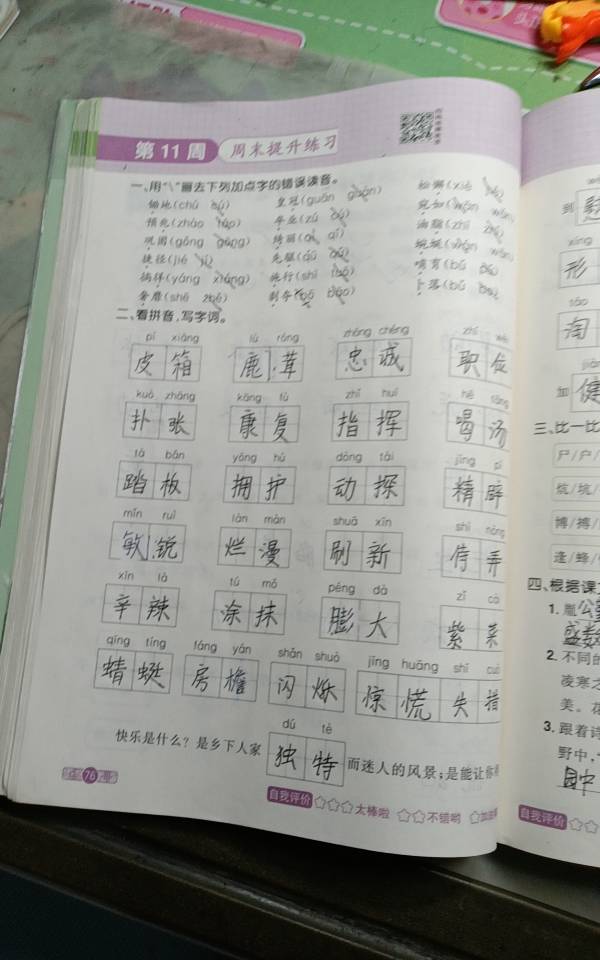 第11周 周末提升练习
一、用“\”画去下列加点字的错误读音。
锄地(chú cú) 皇冠(guān guàn) 松懈(xiè
预兆(zhào 宛如(wǎn
巩固(gǒng gǒng) 绮丽(qǐ qí) 油脂(zhī zhǐ)
捷径(jié jí) 蜿蜒(wān
徜徉(yáng xiáng) 施行(shī 哺育(bǔ
奢靡(shē zhē) 剥夺(bō bāo) 卜落(bǔ
二、看拼音,写字词。
pí xiāng lù róng zhōng chéng zhí
皮箱 鹿茸 忠诚 职位
kuò zhāng kāng fù zhǐ huī hē tāng
扑张 康复 指挥 喝汤
tà bǎn yōng hù dòng tài jīng pì
踏板 拥护 动探 精辟
mǐn ruì làn màn shuā xīn shì nòng
敏锐 烂漫 刷新 侍弄
xīn là tú mǒ péng dà zǐ cài
辛辣 涂抹 膨大 紫菜
qīng tíng fáng yán shǎn shuò jīng huāng shī cuò
蜻蜓 房檐 闪烁 惊慌失措
dú tè
快乐是什么?是乡下人家独特而迷人的风景;是能让你
76
自我评价 太棒啦 不错哟
到
xíng
形
táo
淘
加 健
三、比一比
尸/户/
炕/坑/
博/搏/
逢/蜂/
四、根据课
1.
盛
2. 不同的
凌寒
美。花
3. 跟着诗
野中,
园中
自我评价